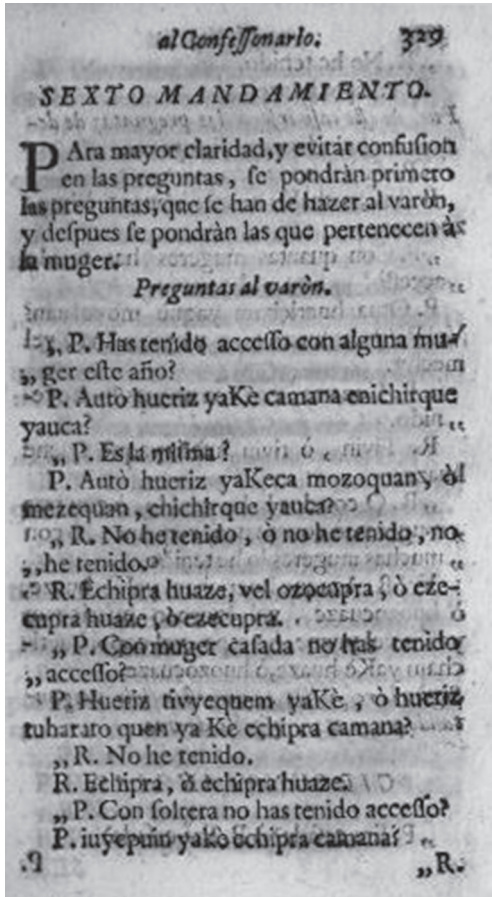 al Confeſſonario. 329
SEXTO MANDAMIENTO.
PAra mayor claridad, y evitar confuſion
en las preguntas, ſe pondràn primero
las preguntas, que ſe han de hazer al varòn,
y deſpues ſe pondràn las que pertenecen à
la muger.
Preguntas al varòn.
„ P. Has tenido acceſſo con alguna mu-
„ ger eſte año?
P. Autò hueriz yaKè camana enichirque
yauca?
„ P. Es la miſma?
P. Autò hueriz yaKeca mozoquan, ò
mezequan, chichirque yauca?
„ R. No he tenido, ò no he tenido, no
„ he tenido.
R. Echipra huaze, vel ozocupra, ò eze-
cupra huaze, ò ezecupra.
„ P. Con muger caſada no has tenido
„ acceſſo?
P. Hueriz tivyequem yaKè, ò hueriz
tuhararo quen ya Kè echipra camana?
„ R. No he tenido.
R. Echipra, ò echipra huaze.
„ P. Con ſoltera no has tenido acceſſo?
P. iuyepuin yakè echipra camana?
„ R.